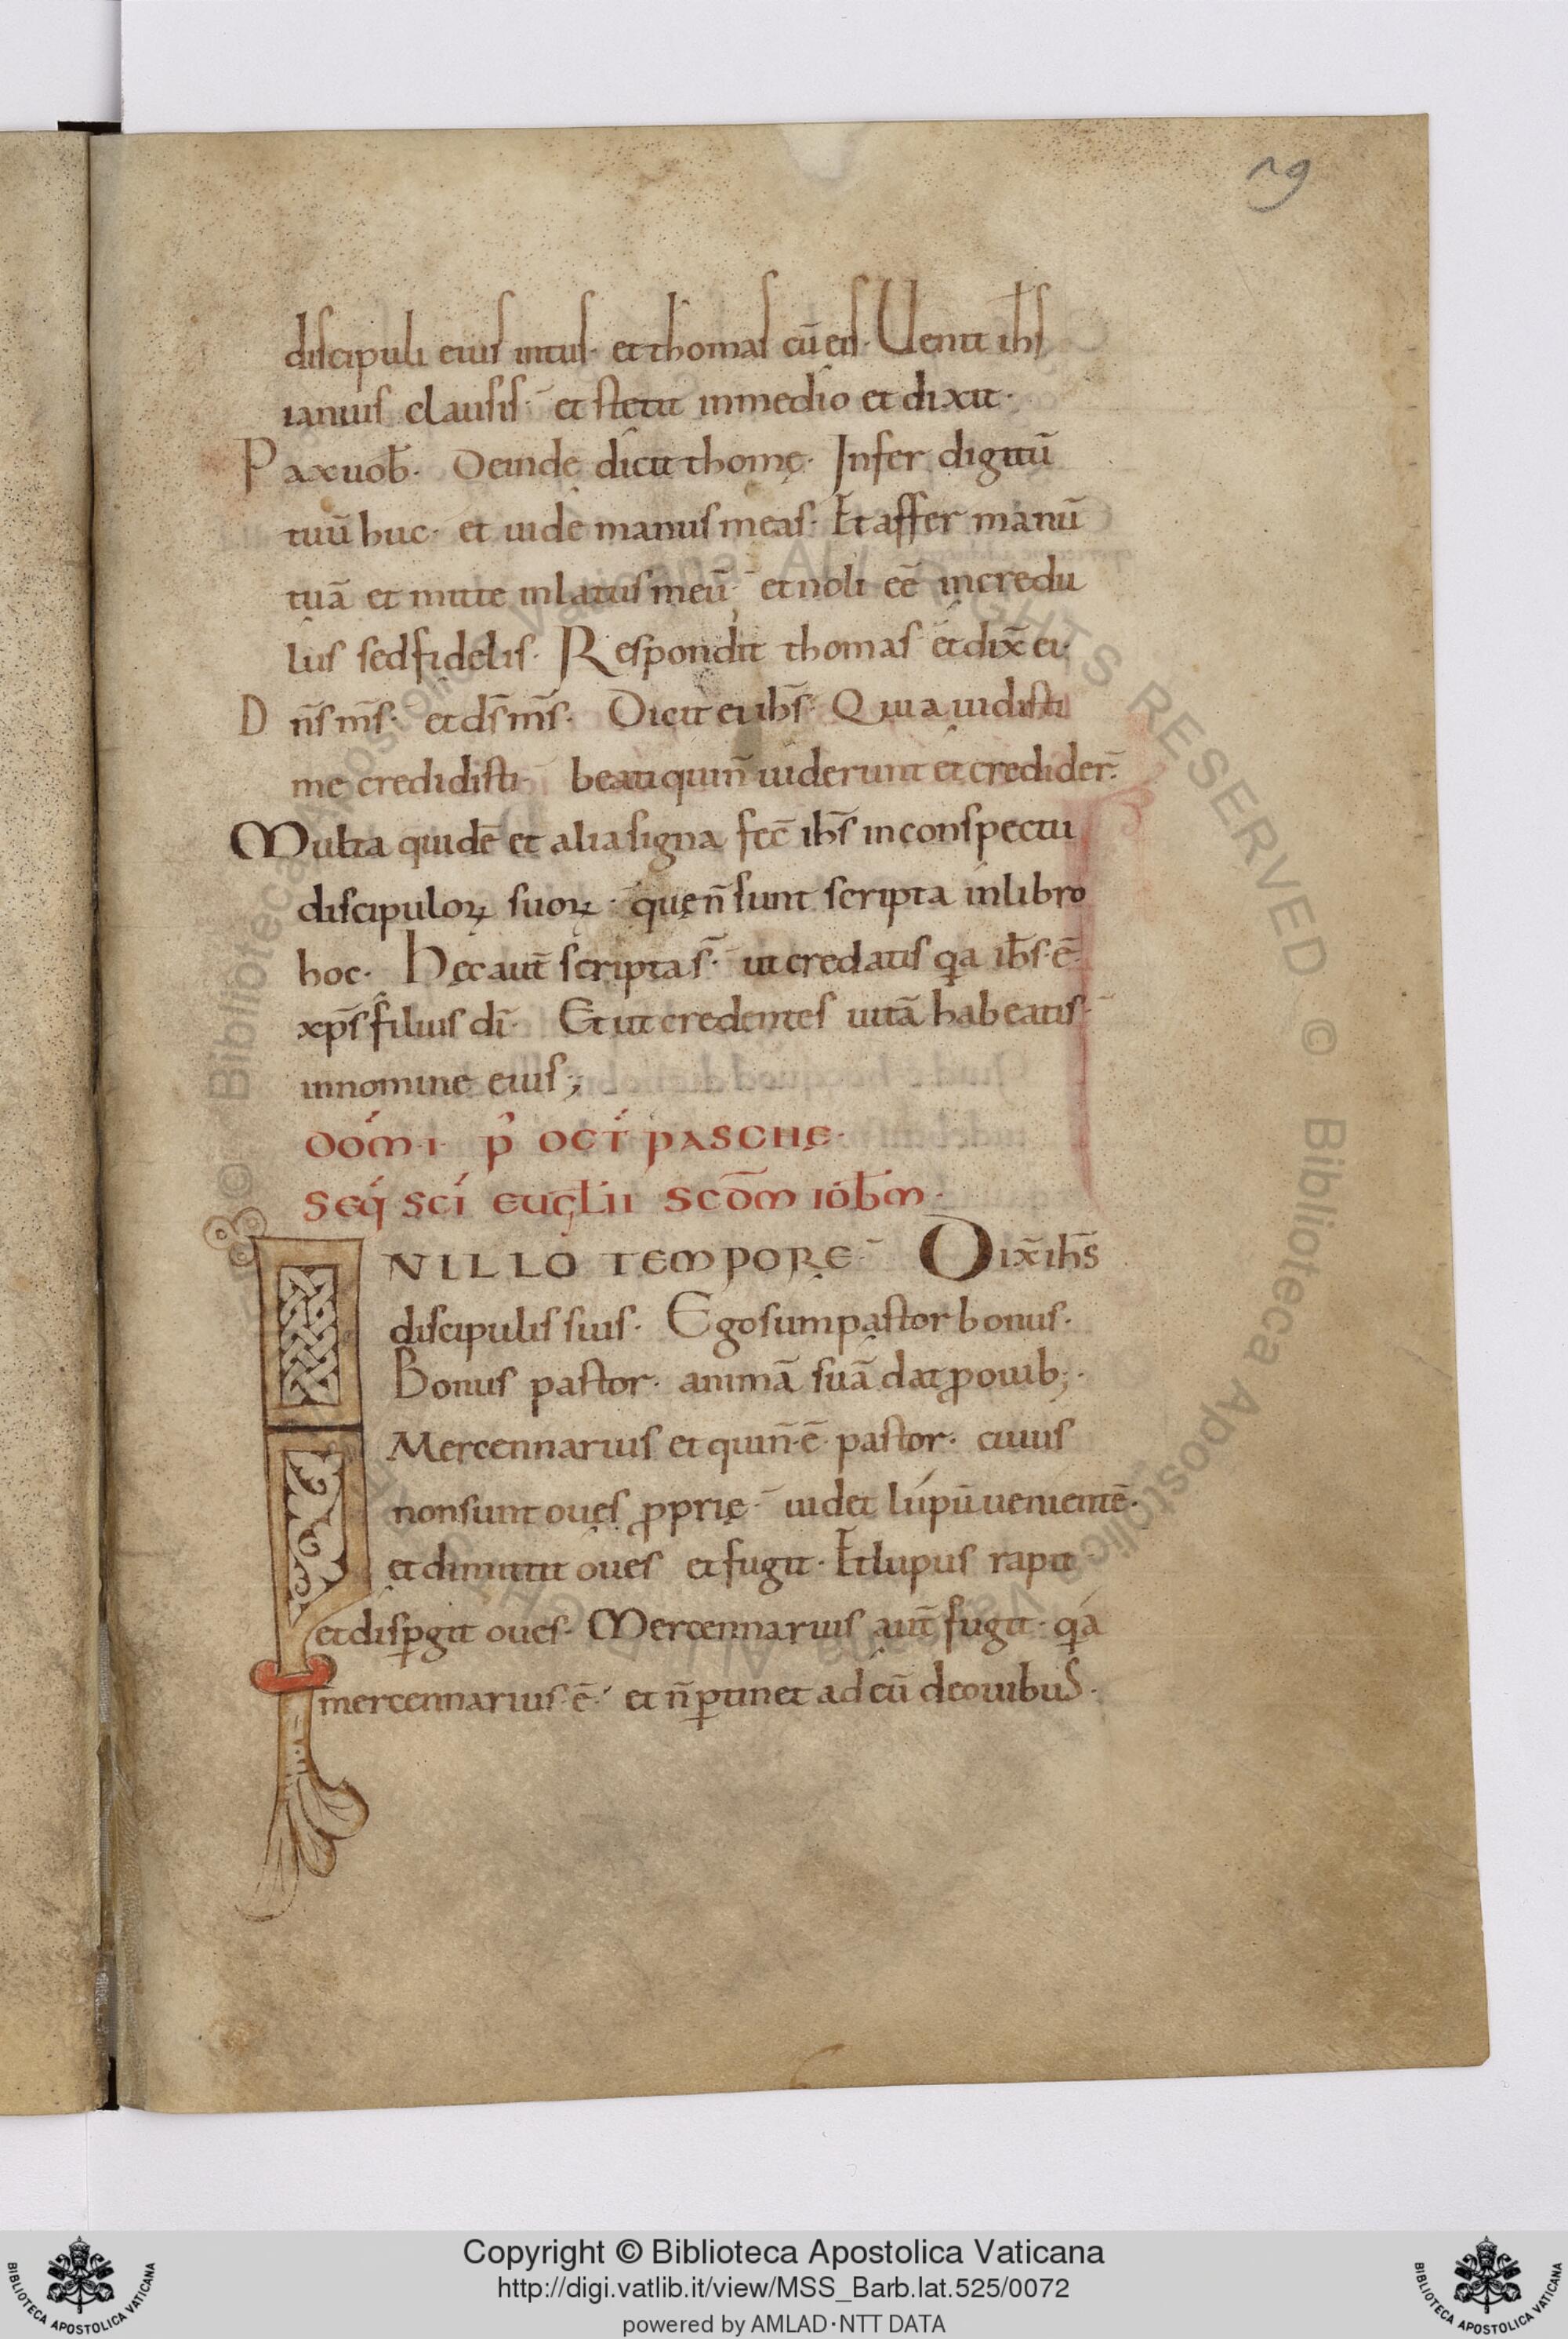 ng
discipuli eius intus· et thomas cū eis· Uenit ihs
ianuis clausis· et stetit inmedio et dixit·
Paxuob̄· Deinde dicit thomę· Infer digitū
tuū huc· et uide manus meas· Et affer manū
tuā et mitte inlatus meū· et noli eē incredu
lus sed fidelis· Respondit thomas et dix̄ ei·
Dn̄s m̄s· et ds̄ m̄s· Dicit ei ihs̄· Quia uidisti
me credidisti· beati qui n̄ uiderunt et credider̄·
Multa quidē et alia signa fec̄ ihs̄ inconspectu
discipuloꝝ suoꝝ· quę n̄ sunt scripta inlibro
hoc· Hęc aut̄ scripta s̄· ut credatis qa ihs̄ ē·
xp̄s filius dī· Et ut credentes uitā habeatis·
innomine eius;
DOM̄·I· P̄ OCT̄ PASCHĘ·
SEQ̄ SCĪ EUGL̄II SCD̄M IOH̄M·
INILLO TEMPORE· Dix̄ ihs̄
discipulis suis· Ego sum pastor bonus·
Bonus pastor· animā suā dat ꝓ ouib;·
Mercennarius et qui n̄ ē pastor· cuius
non sunt oues ꝓprię· uidet lupū uenientē·
et dimittit oues et fugit· Et lupus rapit
et disꝑgit oues· Mercennarius aut̄ fugit· qa
mercennarius ē· et n̄ ꝑtinet ad eū deouibus·
© Biblioteca Apostolica Vaticana ALL RIGHTS RESERVED © Biblioteca Apostolica Vaticana ALL RIGHTS RESERVED
Copyright © Biblioteca Apostolica Vaticana
http://digi.vatlib.it/view/MSS_Barb.lat.525/0072
powered by AMLAD·NTT DATA
BIBLIOTECA APOSTOLICA VATICANA
BIBLIOTECA APOSTOLICA VATICANA